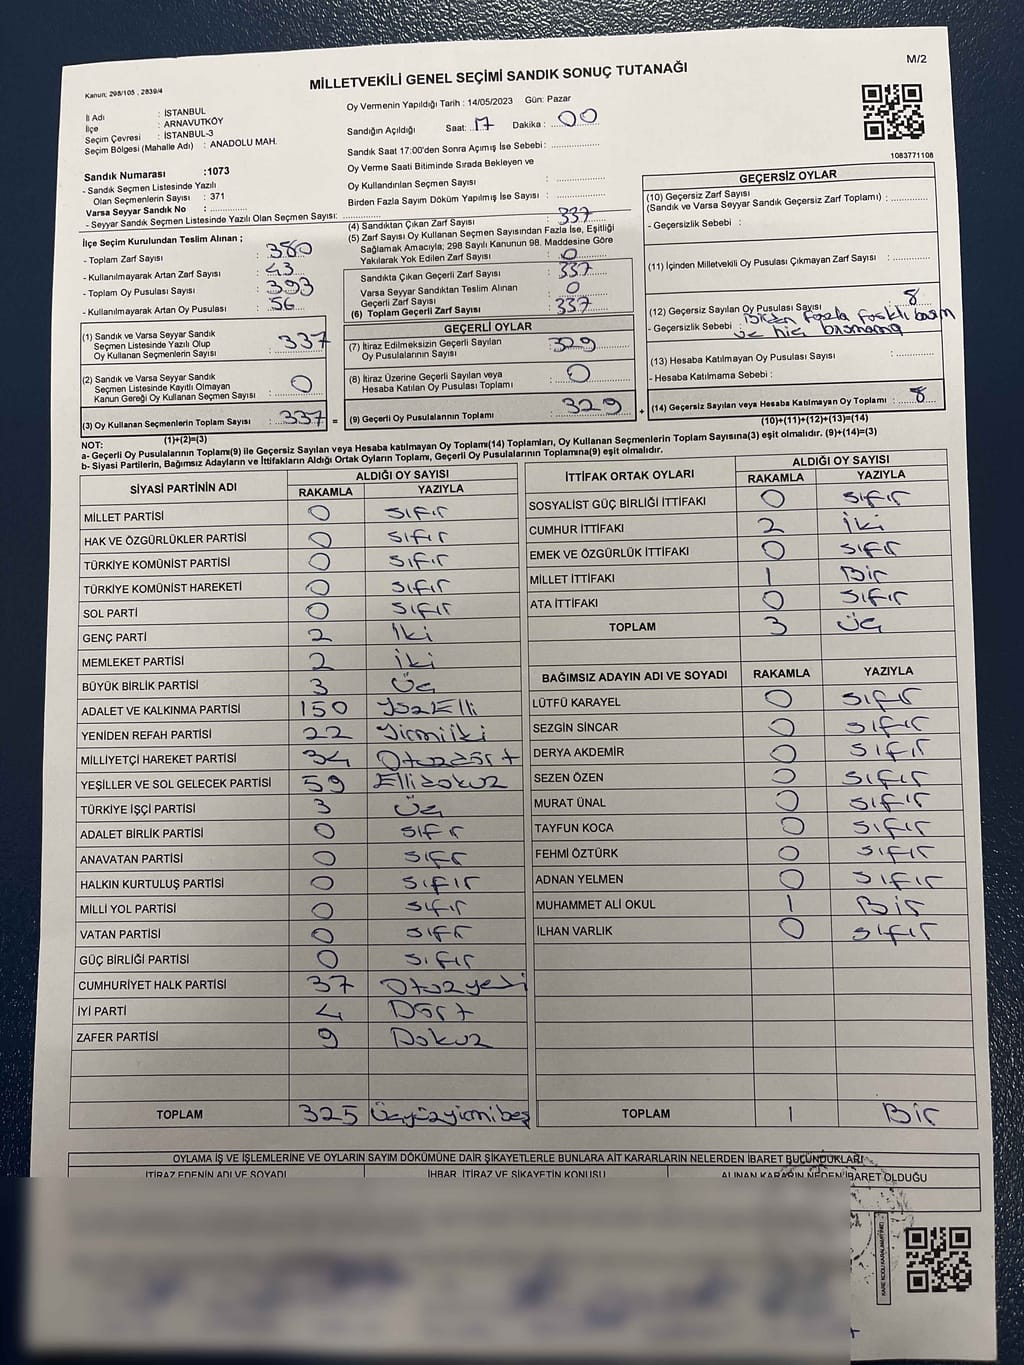 M/2
MİLLETVEKİLİ GENEL SEÇİMİ SANDIK SONUÇ TUTANAĞI
Kanun; 298/105 , 2839/4
İl Adı : İSTANBUL
İlçe : ARNAVUTKÖY
Seçim Çevresi : İSTANBUL-3
Seçim Bölgesi (Mahalle Adı) : ANADOLU MAH.
Oy Vermenin Yapıldığı Tarih : 14/05/2023 Gün: Pazar
Sandığın Açıldığı Saat: 17 Dakika : 00
Sandık Saat 17:00'den Sonra Açımış İse Sebebi:
Oy Verme Saati Bitiminde Sırada Bekleyen ve
Oy Kullandırılan Seçmen Sayısı :
Birden Fazla Sayım Döküm Yapılmış İse Sayısı :
1083771108
Sandık Numarası :1073
- Sandık Seçmen Listesinde Yazılı
Olan Seçmenlerin Sayısı : 371
Varsa Seyyar Sandık No :
- Seyyar Sandık Seçmen Listesinde Yazılı Olan Seçmen Sayısı:
İlçe Seçim Kurulundan Teslim Alınan ;
- Toplam Zarf Sayısı : 380
- Kullanılmayarak Artan Zarf Sayısı : 43
- Toplam Oy Pusulası Sayısı : 393
- Kullanılmayarak Artan Oy Pusulası : 56
(1) Sandık ve Varsa Seyyar Sandık
Seçmen Listesinde Yazılı Olup
Oy Kullanan Seçmenlerin Sayısı : 337
(2) Sandık ve Varsa Seyyar Sandık
Seçmen Listesinde Kayıtlı Olmayan
Kanun Gereği Oy Kullanan Seçmen Sayısı : 0
(3) Oy Kullanan Seçmenlerin Toplam Sayısı : 337 =
(1)+(2)=(3)
(4) Sandıktan Çıkan Zarf Sayısı : 337
(5) Zarf Sayısı Oy Kullanan Seçmen Sayısından Fazla İse, Eşitliği
Sağlamak Amacıyla; 298 Sayılı Kanunun 98. Maddesine Göre
Yakılarak Yok Edilen Zarf Sayısı : 0
Sandıkta Çıkan Geçerli Zarf Sayısı : 337
Varsa Seyyar Sandıktan Teslim Alınan
Geçerli Zarf Sayısı : 0
(6) Toplam Geçerli Zarf Sayısı : 337
GEÇERLİ OYLAR
(7) İtiraz Edilmeksizin Geçerli Sayılan
Oy Pusulalarının Sayısı : 329
(8) İtiraz Üzerine Geçerli Sayılan veya
Hesaba Katılan Oy Pusulası Toplamı : 0
(9) Geçerli Oy Pusulalarının Toplamı : 329 +
GEÇERSİZ OYLAR
(10) Geçersiz Zarf Sayısı
(Sandık ve Varsa Seyyar Sandık Geçersiz Zarf Toplamı) :
- Geçersizlik Sebebi :
(11) İçinden Milletvekili Oy Pusulası Çıkmayan Zarf Sayısı :
(12) Geçersiz Sayılan Oy Pusulası Sayısı : 8
- Geçersizlik Sebebi : Birden fazla farklı basım
ve hiç basmama
(13) Hesaba Katılmayan Oy Pusulası Sayısı :
- Hesaba Katılmama Sebebi :
(14) Geçersiz Sayılan veya Hesaba Katılmayan Oy Toplamı : 8
(10)+(11)+(12)+(13)=(14)
NOT:
a- Geçerli Oy Pusulalarının Toplamı(9) ile Geçersiz Sayılan veya Hesaba katılmayan Oy Toplamı(14) Toplamları, Oy Kullanan Seçmenlerin Toplam Sayısına(3) eşit olmalıdır. (9)+(14)=(3)
b- Siyasi Partilerin, Bağımsız Adayların ve İttifakların Aldığı Ortak Oyların Toplamı, Geçerli Oy Pusulalarının Toplamına(9) eşit olmalıdır.
SİYASİ PARTİNİN ADI ALDIĞI OY SAYISI
RAKAMLA YAZIYLA
MİLLET PARTİSİ 0 sıfır
HAK VE ÖZGÜRLÜKLER PARTİSİ 0 sıfır
TÜRKİYE KOMÜNİST PARTİSİ 0 sıfır
TÜRKİYE KOMÜNİST HAREKETİ 0 sıfır
SOL PARTİ 0 sıfır
GENÇ PARTİ 2 iki
MEMLEKET PARTİSİ 2 iki
BÜYÜK BİRLİK PARTİSİ 3 Üç
ADALET VE KALKINMA PARTİSİ 150 YüzElli
YENİDEN REFAH PARTİSİ 22 Yirmiiki
MİLLİYETÇİ HAREKET PARTİSİ 34 Otuzdört
YEŞİLLER VE SOL GELECEK PARTİSİ 59 Ellidokuz
TÜRKİYE İŞÇİ PARTİSİ 3 Üç
ADALET BİRLİK PARTİSİ 0 sıfır
ANAVATAN PARTİSİ 0 sıfır
HALKIN KURTULUŞ PARTİSİ 0 sıfır
MİLLİ YOL PARTİSİ 0 sıfır
VATAN PARTİSİ 0 sıfır
GÜÇ BİRLİĞİ PARTİSİ 0 sıfır
CUMHURİYET HALK PARTİSİ 37 Otuzyedi
İYİ PARTİ 4 Dört
ZAFER PARTİSİ 9 Dokuz
TOPLAM 325 Üçyüzyirmibeş
İTTİFAK ORTAK OYLARI ALDIĞI OY SAYISI
RAKAMLA YAZIYLA
SOSYALİST GÜÇ BİRLİĞİ İTTİFAKI 0 sıfır
CUMHUR İTTİFAKI 2 iki
EMEK VE ÖZGÜRLÜK İTTİFAKI 0 sıfır
MİLLET İTTİFAKI 1 Bir
ATA İTTİFAKI 0 sıfır
TOPLAM 3 üç
BAĞIMSIZ ADAYIN ADI VE SOYADI RAKAMLA YAZIYLA
LÜTFÜ KARAYEL 0 sıfır
SEZGİN SİNCAR 0 sıfır
DERYA AKDEMİR 0 sıfır
SEZEN ÖZEN 0 sıfır
MURAT ÜNAL 0 sıfır
TAYFUN KOCA 0 sıfır
FEHMİ ÖZTÜRK 0 sıfır
ADNAN YELMEN 0 sıfır
MUHAMMET ALİ OKUL 1 Bir
İLHAN VARLIK 0 sıfır
TOPLAM 1 Bir
OYLAMA İŞ VE İŞLEMLERİNE VE OYLARIN SAYIM DÖKÜMÜNE DAİR ŞİKAYETLERLE BUNLARA AİT KARARLARIN NELERDEN İBARET BULUNDUKLARI
İTİRAZ EDENİN ADI VE SOYADI İHBAR, İTİRAZ VE ŞİKAYETİN KONUSU ALINAN KARARIN NEDEN İBARET OLDUĞU